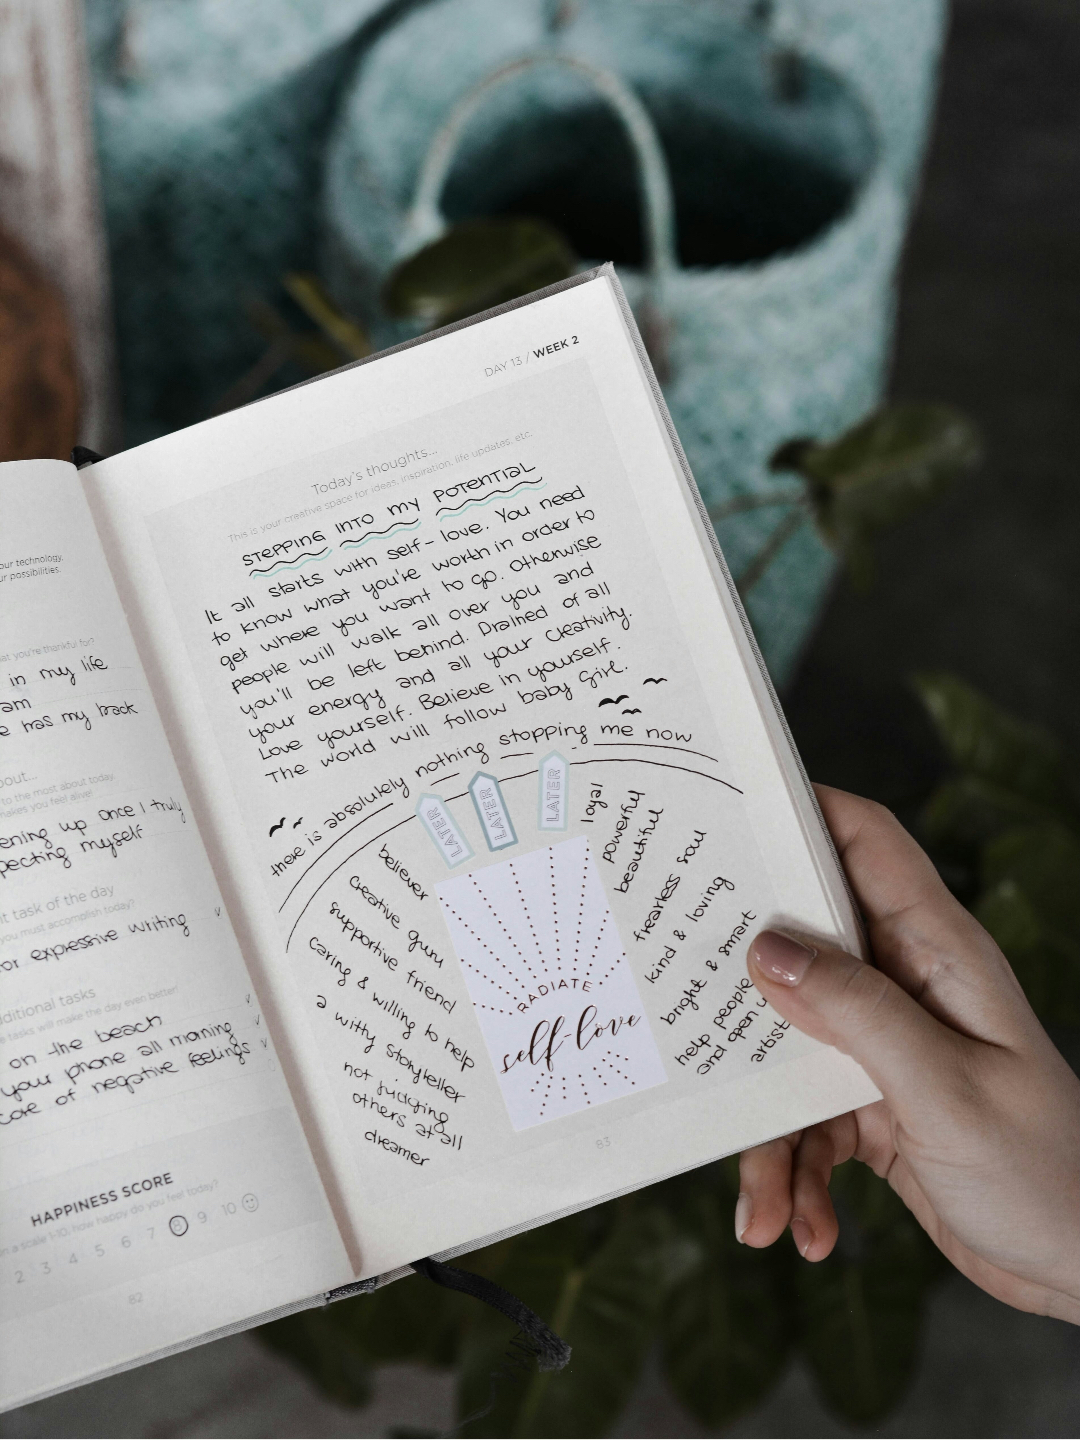 our technology,
ur possibilities.
at you're thankful for?
in my life
am
e has my back
bout...
to the most about today.
akes you feel alive.
ening up once I truly
pecting myself
nt task of the day
you must accomplish today?
or expressive writing
dditional tasks
tasks will make the day even better!
on the beach
your phone all morning
care of negative feelings
HAPPINESS SCORE
on a scale 1-10, how happy do you feel today?
2 3 4 5 6 7 8 9 10
82
DAY 13 / WEEK 2
Today's thoughts...
This is your creative space for ideas, inspiration, life updates, etc.
STEPPING INTO MY POTENTIAL
It all starts with self-love. You need
to know what you're worth in order to
get where you want to go. Otherwise
people will walk all over you and
you'll be left behind. Drained of all
your energy and all your creativity.
Love yourself. Believe in yourself.
The world will follow baby girl.
there is absolutely nothing stopping me now
LATER
LATER
LATER
believer
creative guru
supportive friend
caring & willing to help
a witty storyteller
not judging
others at all
dreamer
RADIATE
self-love
loyal
powerful
beautiful
fearless soul
kind & loving
bright & smart
help people
and open u
artist
83